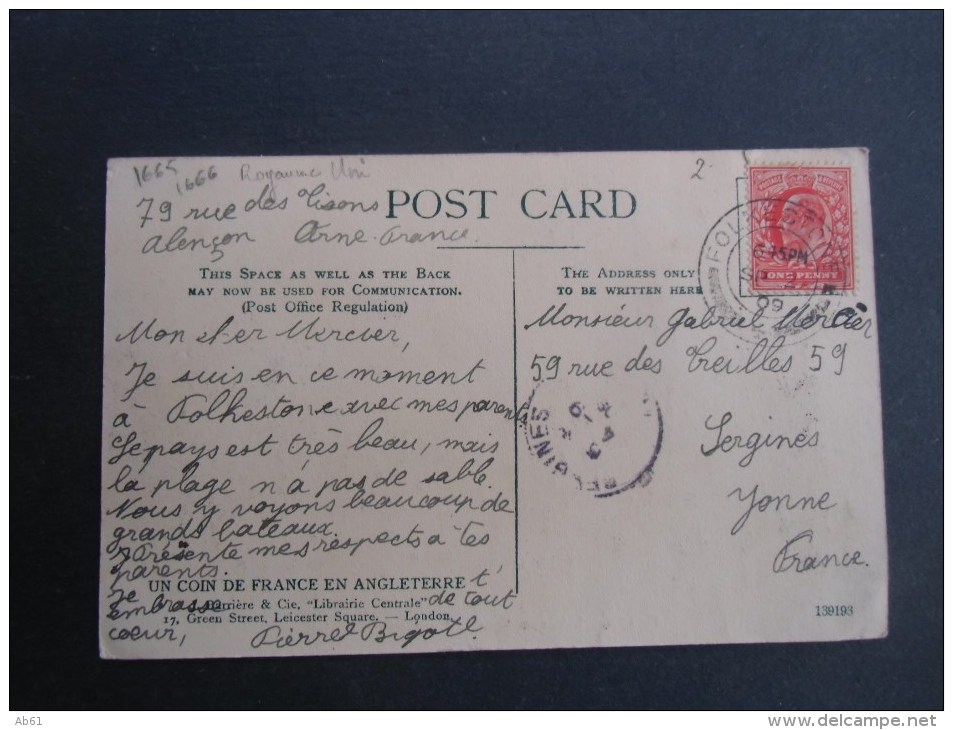 1665
1666 Royaume Uni
2
79 rue des Tisons
Alençon Orne. France.
POST CARD
THIS SPACE AS WELL AS THE BACK
MAY NOW BE USED FOR COMMUNICATION.
(Post Office Regulation)
THE ADDRESS ONLY
TO BE WRITTEN HERE
POSTAGE & REVENUE
ONE PENNY
FOLKESTONE
6 45 PM
SP
09
Mon cher Mercier,
Je suis en ce moment
à Folkestone avec mes parents
Le pays est très beau, mais
la plage n'a pas de sable.
Nous y voyons beaucoup de
grands bateaux.
Présente mes respects à tes
parents.
Je t'
embrasse de tout
coeur,
Pierre Bigot.
UN COIN DE FRANCE EN ANGLETERRE
& Cie, "Librairie Centrale"
17, Green Street, Leicester Square, — London.
Monsieur Gabriel Mercier
59 rue des Treilles 59
Sergines
Yonne
France.
SERGINES
139193
Ab61
www.delcampe.net